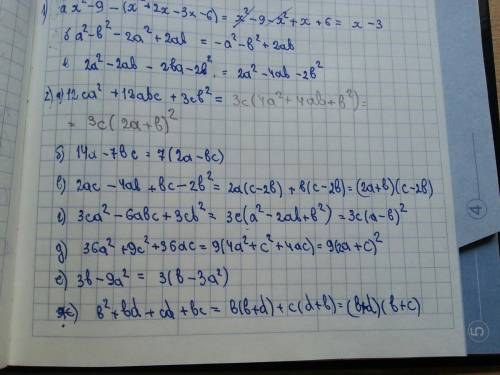 1) a x² - 9 - (x² + 2x - 3x - 6) = x² - 9 - x² + x + 6 = x - 3
б a² - b² - 2a² + 2ab = -a² - b² + 2ab
в 2a² - 2ab - 2ba - 2b² = 2a² - 4ab - 2b²
2) a) 12ca² + 12abc + 3cb² = 3c(4a² + 4ab + b²) =
= 3c(2a+b)²
б) 14a - 7bc = 7(2a - bc)
в) 2ac - 4ab + bc - 2b² = 2a(c-2b) + b(c-2b) = (2a+b)(c-2b)
г) 3ca² - 6abc + 3cb² = 3c(a² - 2ab + b²) = 3c(a-b)²
д) 36a² + 9c² + 36ac = 9(4a² + c² + 4ac) = 9(2a+c)²
е) 3b - 9a² = 3(b - 3a²)
ж) b² + bd + cd + bc = b(b+d) + c(d+b) = (b+d)(b+c)
4
5